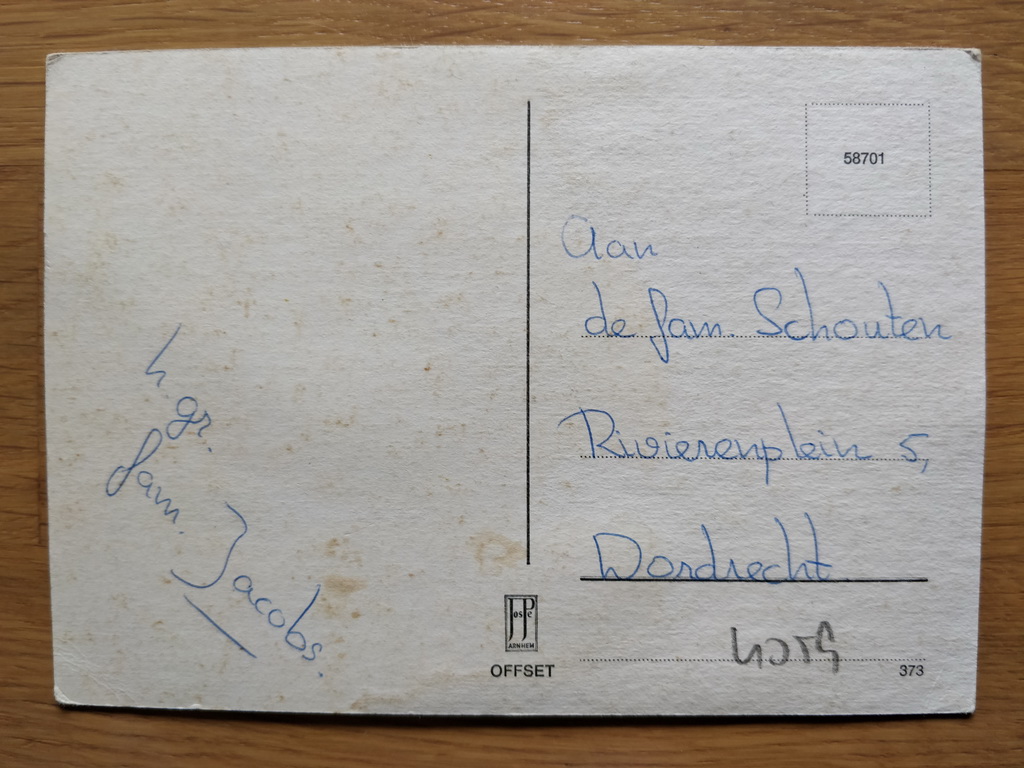 h. gr.
fam. Jacobs.
58701
Aan
de fam. Schouten
Rivierenplein 5,
Dordrecht.
JosPé
ARNHEM
OFFSET
373